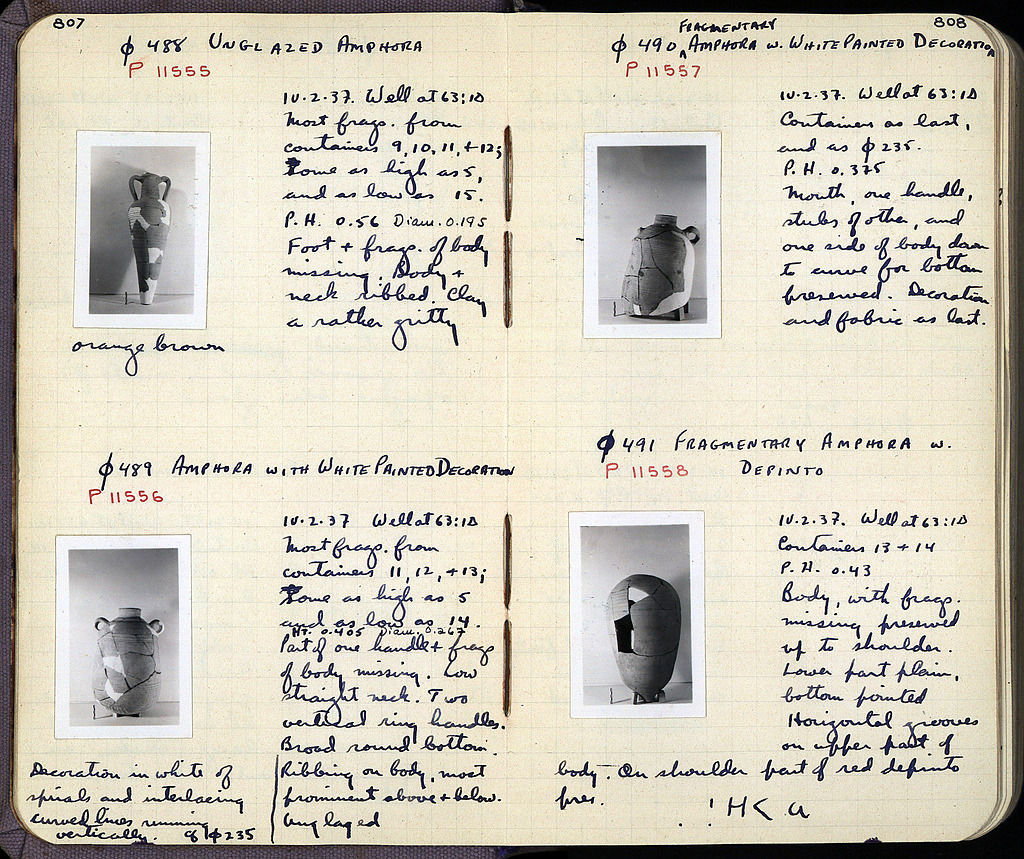 807
φ 488 UNGLAZED AMPHORA
P 11555
IV.2.37. Well at 63:ΙΔ
Most frags. from
containers 9, 10, 11, + 12;
Some as high as 5,
and as low as 15.
P.H. 0.56 Diam. 0.195
Foot + frags. of body
missing. Body +
neck ribbed. Clay
a rather gritty
orange brown
φ 489 AMPHORA WITH WHITE PAINTED DECORATION
P 11556
IV.2.37 Well at 63:ΙΔ
Most frags. from
containers 11, 12, + 13;
Some as high as 5
and as low as 14.
Ht. 0.405 Diam. 0.267
Part of one handle + frags
of body missing. Low
straight neck. Two
vertical ring handles.
Broad round bottom.
Ribbing on body, most
prominent above + below.
Unglazed
Decoration in white of
spirals and interlacing
curved lines running
vertically. cf φ 235
808
FRAGMENTARY
φ 490 ‸ AMPHORA W. WHITE PAINTED DECORATION
P 11557
IV.2.37. Well at 63:ΙΔ
Containers as last,
and as φ 235.
P.H. 0.375
Mouth, one handle,
stubs of other, and
one side of body down
to curve for bottom
preserved. Decoration
and fabric as last.
φ 491 FRAGMENTARY AMPHORA W.
DEPINTO
P 11558
IV.2.37. Well at 63:ΙΔ
Containers 13 + 14
P.H. 0.43
Body, with frags.
missing preserved
up to shoulder.
Lower part plain,
bottom pointed
Horizontal grooves
on upper part of
body. On shoulder part of red depinto
pres.